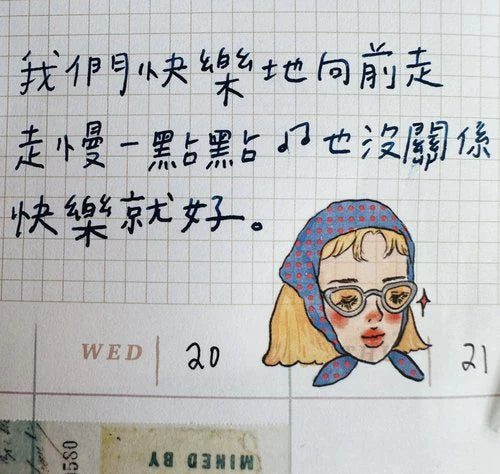 我們快樂地向前走
走慢一點點♫也沒關係
快樂就好。
WED 20 21
1580
MINED BY